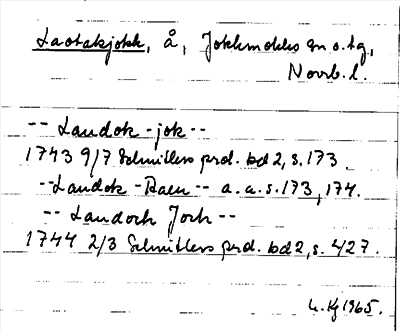 Laotakjokk, å, Jokkmokks sn o. tg,
Norrb. l.
-- Landok-jok --
1743 9/7 Schnitlers prot. bd 2, s. 173.
-- Landok-Raeu -- a. a. s. 173, 174.
-- Landock Jock --
1744 2/3 Schnitlers prot. bd 2, s. 427.
1965.